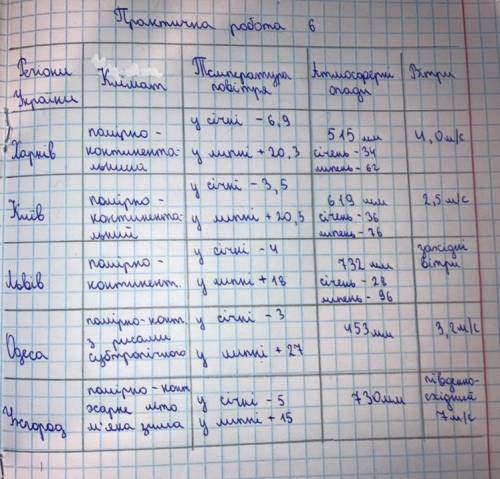 Практична робота 6
Регіони України Клімат Температура повітря Атмосферні опади Вітри
Харків помірно-континентальний у січні - 6,9 у липні + 20,3 515 мм січень - 34 липень - 62 4,0 м/с
Київ помірно-континентальний у січні - 3,5 у липні + 20,3 619 мм січень - 36 липень - 76 2,5 м/с
Львів помірно-континент. у січні - 4 у липні + 18 732 мм січень - 28 липень - 96 західні вітри
Одеса помірно-конт. з рисами субтропічного у січні - 3 у липні + 27 453 мм 3,2 м/с
Ужгород помірно-конт жарке літо м'яка зима у січні - 5 у липні + 15 730 мм південно-східний 7 м/с